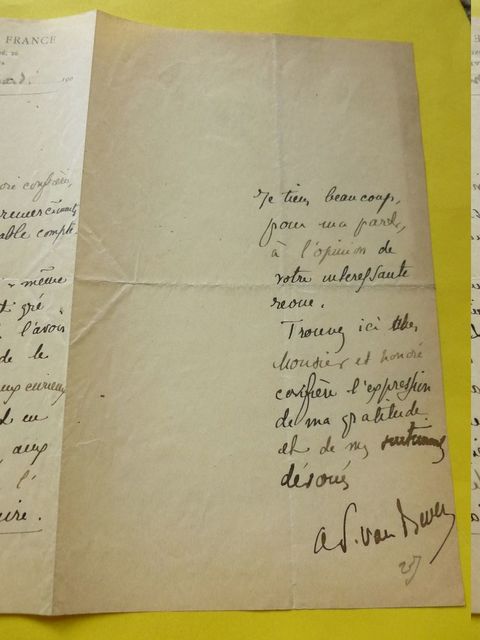 FRANCE
190
confrère,
remerciements
able compte
même
gré
l'avoir
de le
curieux
en
aux
l'
ire.
Je tiens beaucoup,
pour ma part,
à l'opinion de
votre intéressante
revue.
Trouvez ici cher
Monsieur et honoré
confrère l'expression
de ma gratitude
et de mes sentiments
dévoués
Ad. van Bever